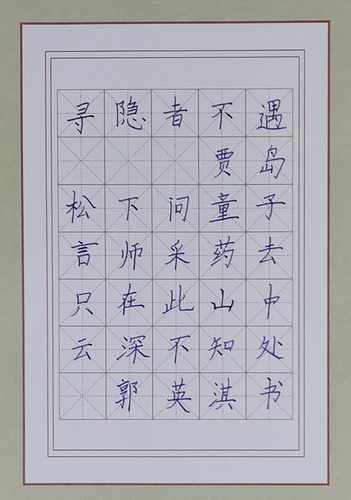 寻隐者不遇
贾岛
松下问童子
言师采药去
只在此山中
云深不知处
郭英淇书